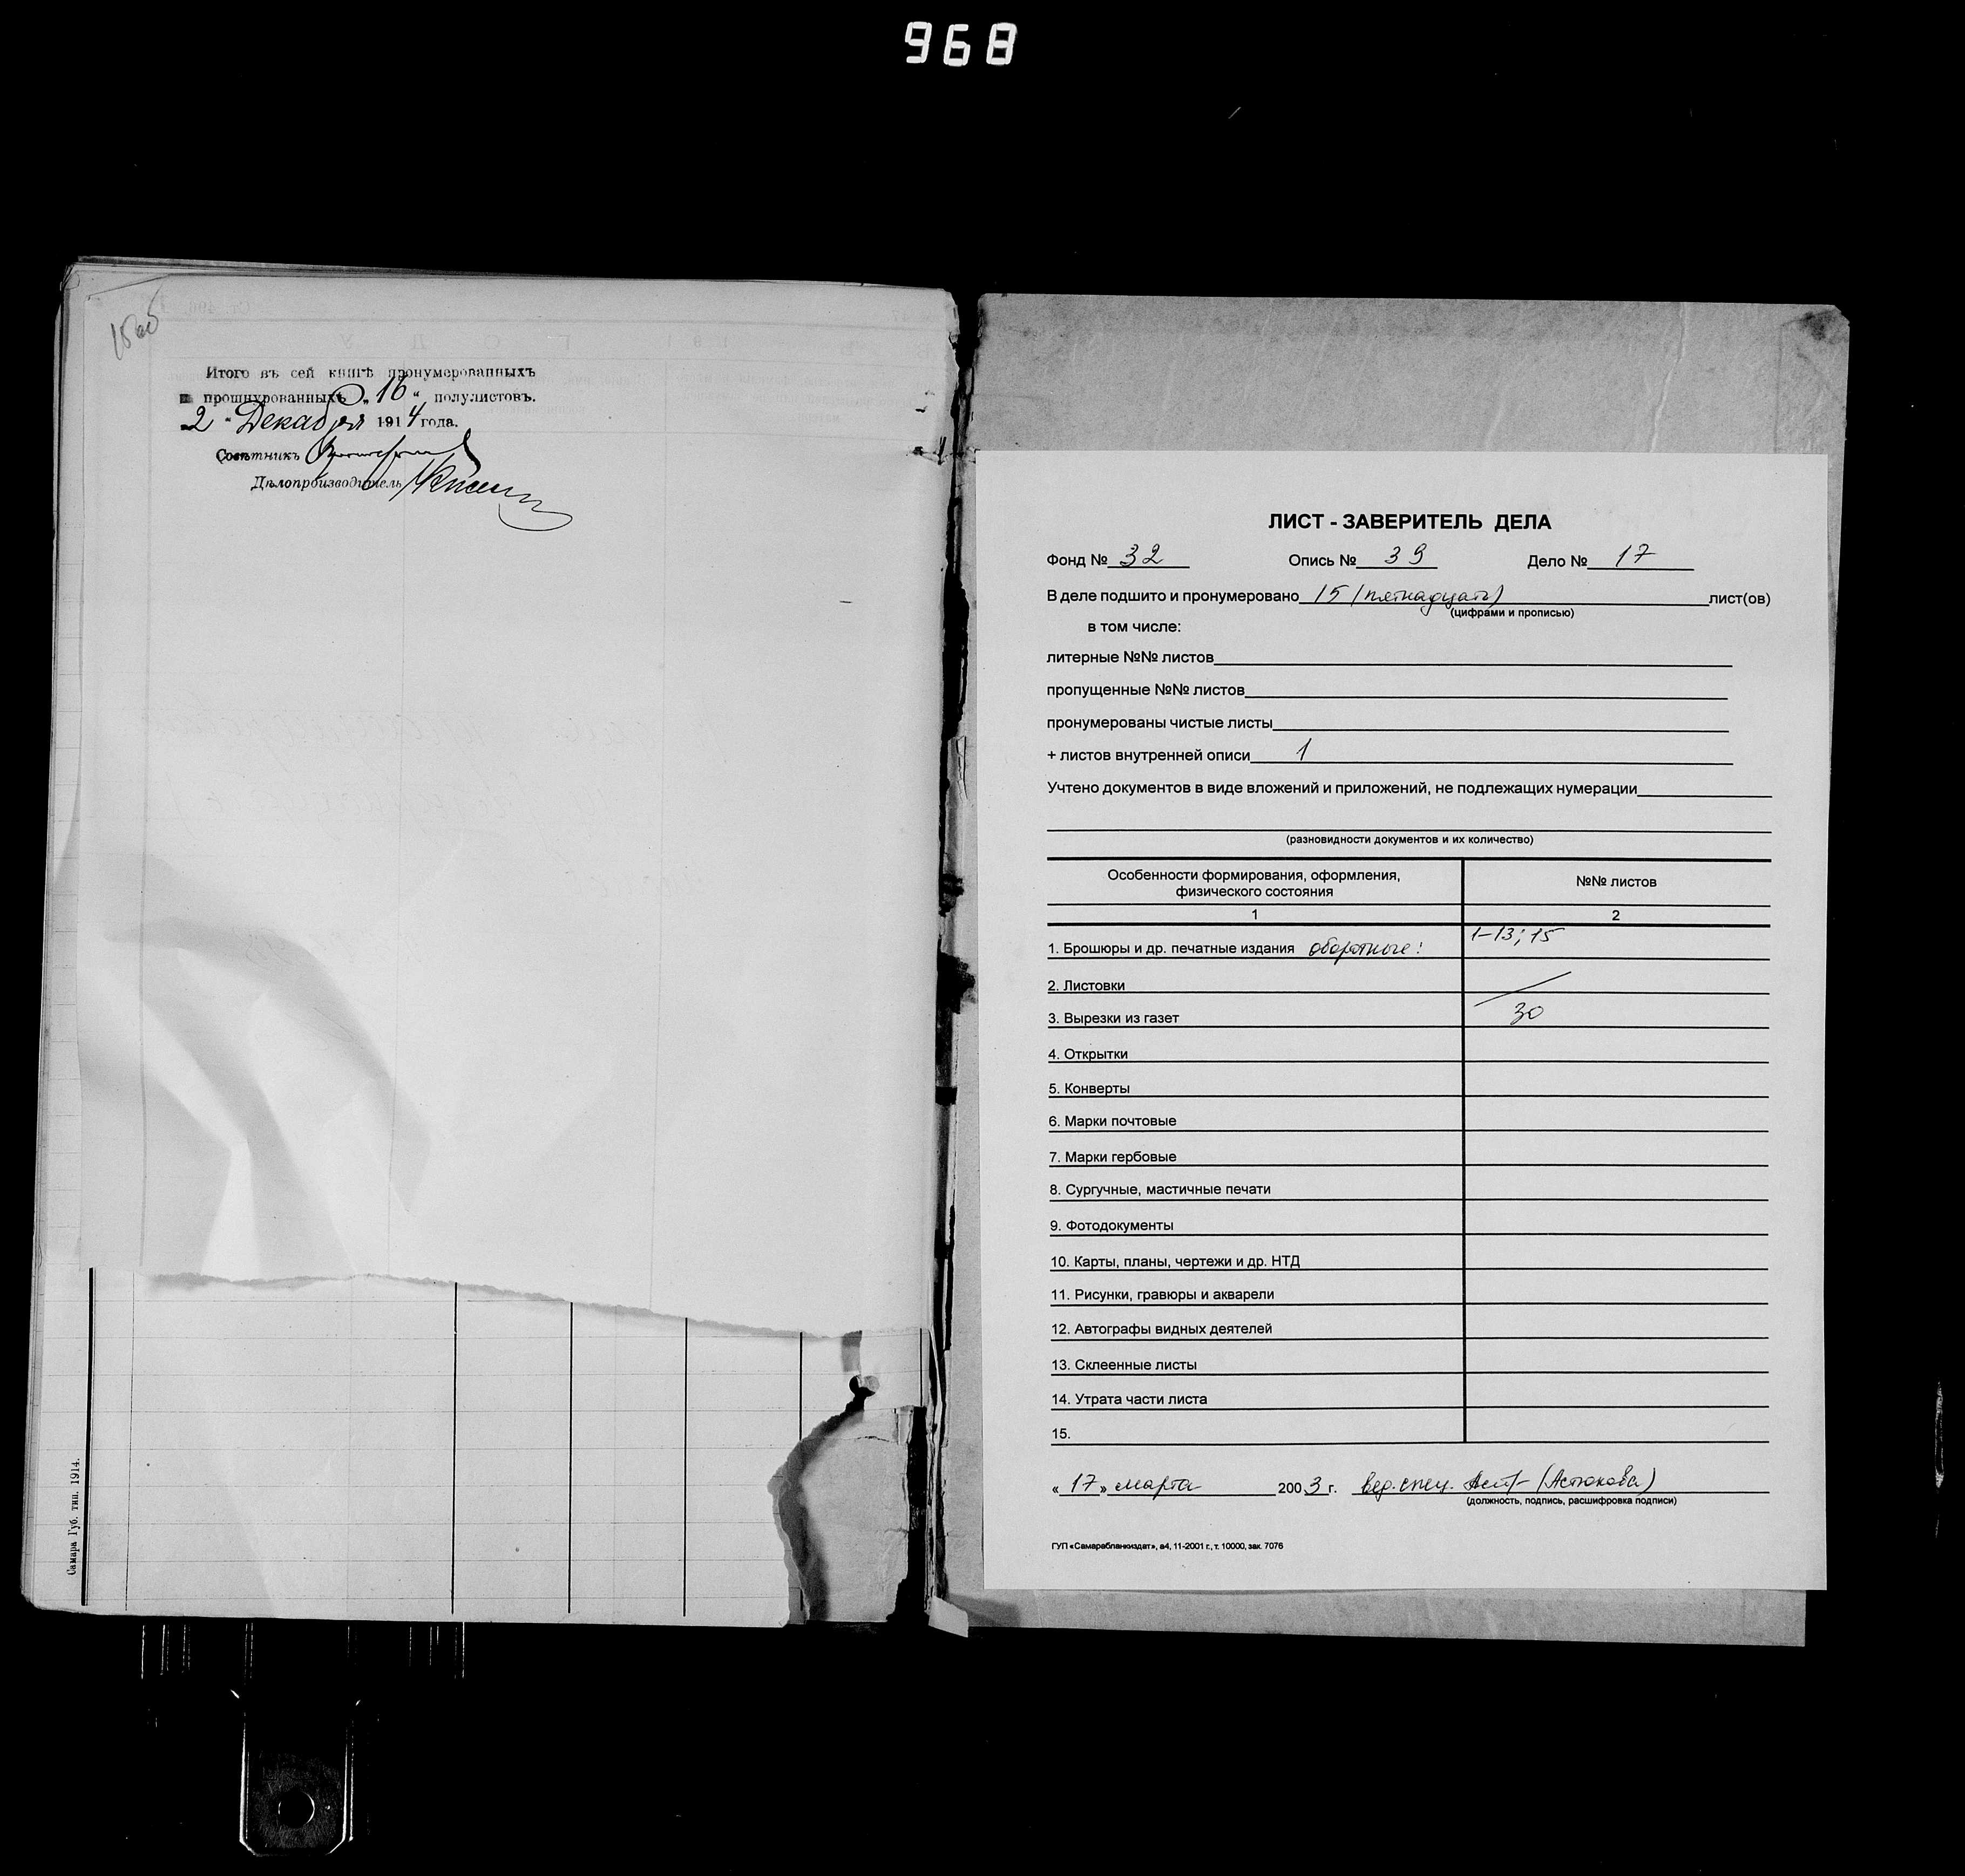 968
15об
Итого въ сей книгѣ пронумерованныхъ
и прошнурованныхъ „ 16 “ полулистовъ.
2 " Декабря 1914 года.
Совѣтникъ
Дѣлопроизводитель
Самара Губ. тип. 1914.
ЛИСТ - ЗАВЕРИТЕЛЬ ДЕЛА
Фонд № 32 Опись № 39 Дело № 17
В деле подшито и пронумеровано 15 (пятнадцать) лист(ов)
(цифрами и прописью)
в том числе:
литерные №№ листов
пропущенные №№ листов
пронумерованы чистые листы
+ листов внутренней описи 1
Учтено документов в виде вложений и приложений, не подлежащих нумерации
(разновидности документов и их количество)
Особенности формирования, оформления, физического состояния №№ листов
1 2
1. Брошюры и др. печатные издания оборотные: 1-13; 15
2. Листовки
3. Вырезки из газет 30
4. Открытки
5. Конверты
6. Марки почтовые
7. Марки гербовые
8. Сургучные, мастичные печати
9. Фотодокументы
10. Карты, планы, чертежи и др. НТД
11. Рисунки, гравюры и акварели
12. Автографы видных деятелей
13. Склеенные листы
14. Утрата части листа
15.
« 17 » марта 2003 г. вед. спец. (Астюкова)
(должность, подпись, расшифровка подписи)
ГУП «Самарабланкиздат», а4, 11-2001 г., т. 10000, зак. 7076